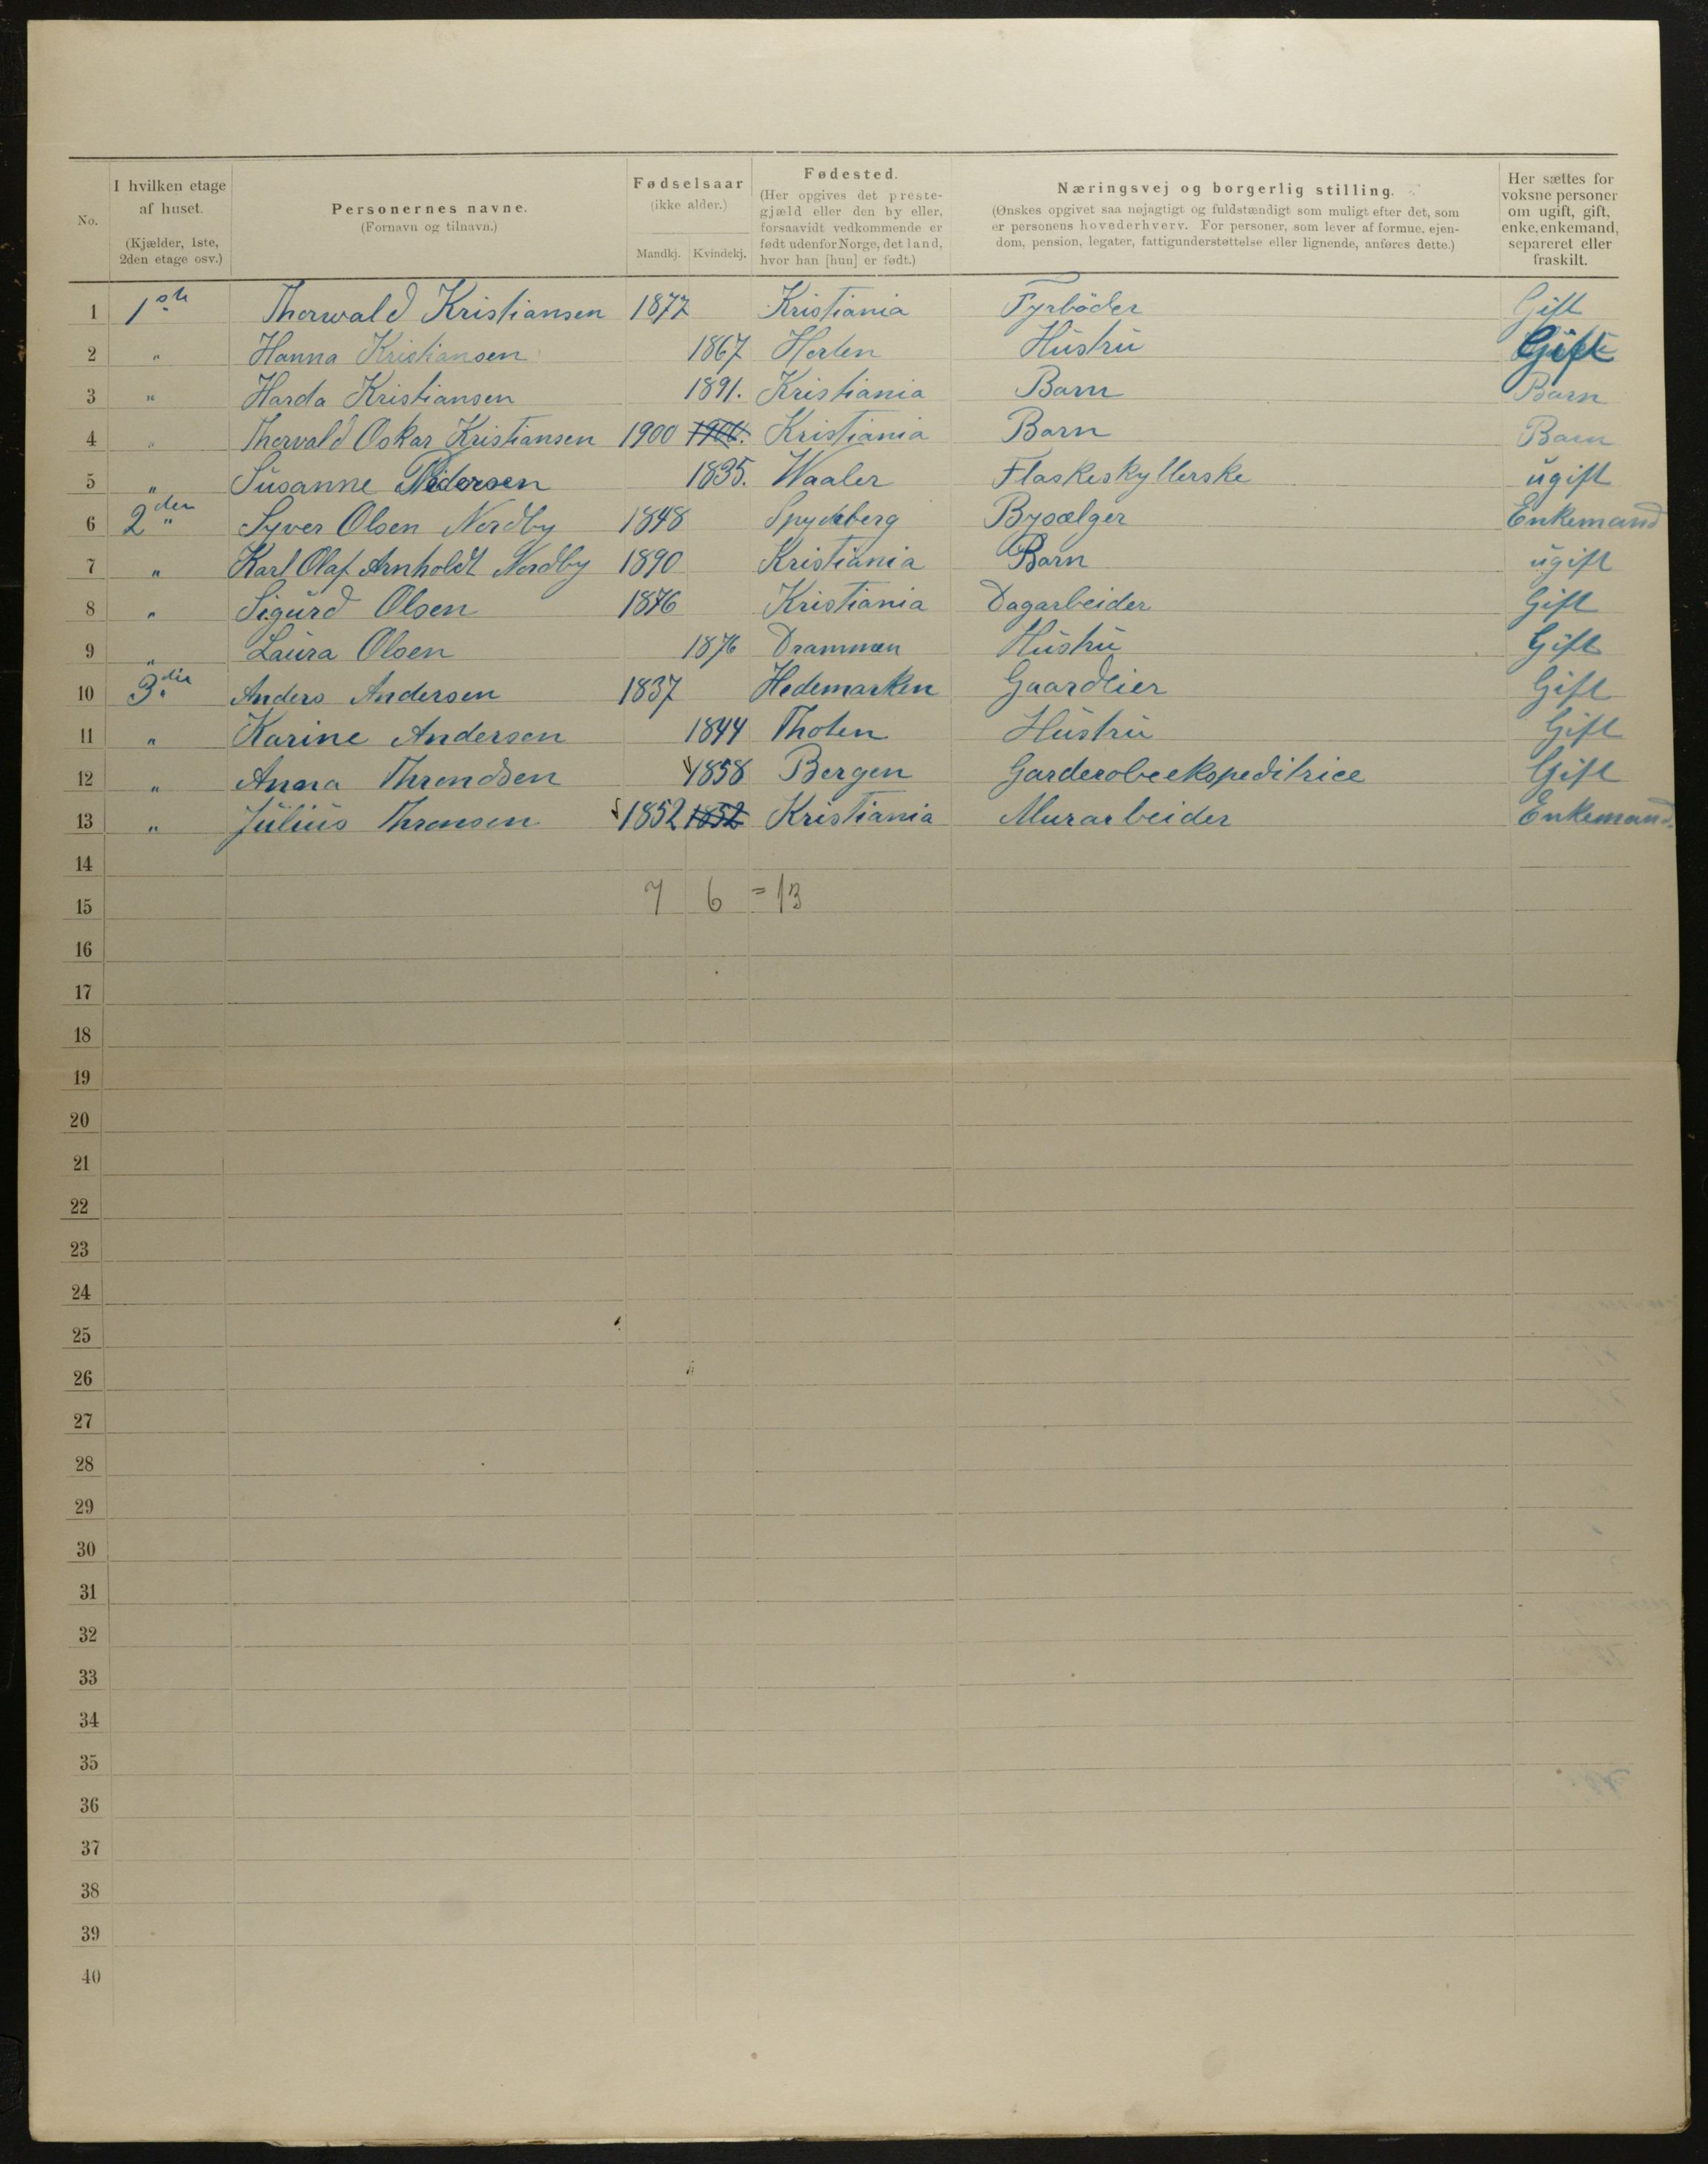 No.
I hvilken etage af huset. (Kjælder, 1ste, 2den etage osv.)
Personernes navne. (Fornavn og tilnavn.)
Fødselsaar (ikke alder.)
Mandkj. Kvindekj.
Fødested. (Her opgives det prestegjæld eller den by eller, forsaavidt vedkommende er født udenfor Norge, det land, hvor han [hun] er født.)
Næringsvej og borgerlig stilling.
(Ønskes opgivet saa nøjagtigt og fuldstændigt som muligt efter det, som
er personens hovederhverv. For personer, som lever af formue, ejen-
dom, pension, legater, fattigunderstøttelse eller lignende, anføres dette.)
Her sættes for voksne personer om ugift, gift, enke, enkemand, separeret eller fraskilt.
1 1ste Thorwald Kristiansen 1877 Kristiania Fyrbøder Gift
2 " Hanna Kristiansen 1867 Horten Hustru Gift
3 " Harda Kristiansen 1891. Kristiania Barn Barn
4 " Thorvald Oskar Kristiansen 1900 1900. Kristiania Barn Barn
5 " Susanne Pedersen 1835. Waaler Flaskeskyllerske ugift
6 2den " Syver Olsen Nordby 1848 Spydeberg Bysælger Enkemand
7 " Karl Olaf Arnholdt Nordby 1890 Kristiania Barn ugift
8 " Sigurd Olsen 1876 Kristiania Dagarbeider Gift
9 " Laura Olsen 1876 Drammen Hustru Gift
10 3die Anders Andersen 1837 Hedemarken Gaardeier Gift
11 " Karine Andersen 1844 Thoten Hustru Gift
12 " Anna Throndsen 1858 Bergen Garderobeekspeditrice Gift
13 " Julius Thronsen 1852 1852 Kristiania Murarbeider Enkemand.
14
15 7 6 = 13
16
17
18
19
20
21
22
23
24
25
26
27
28
29
30
31
32
33
34
35
36
37
38
39
40